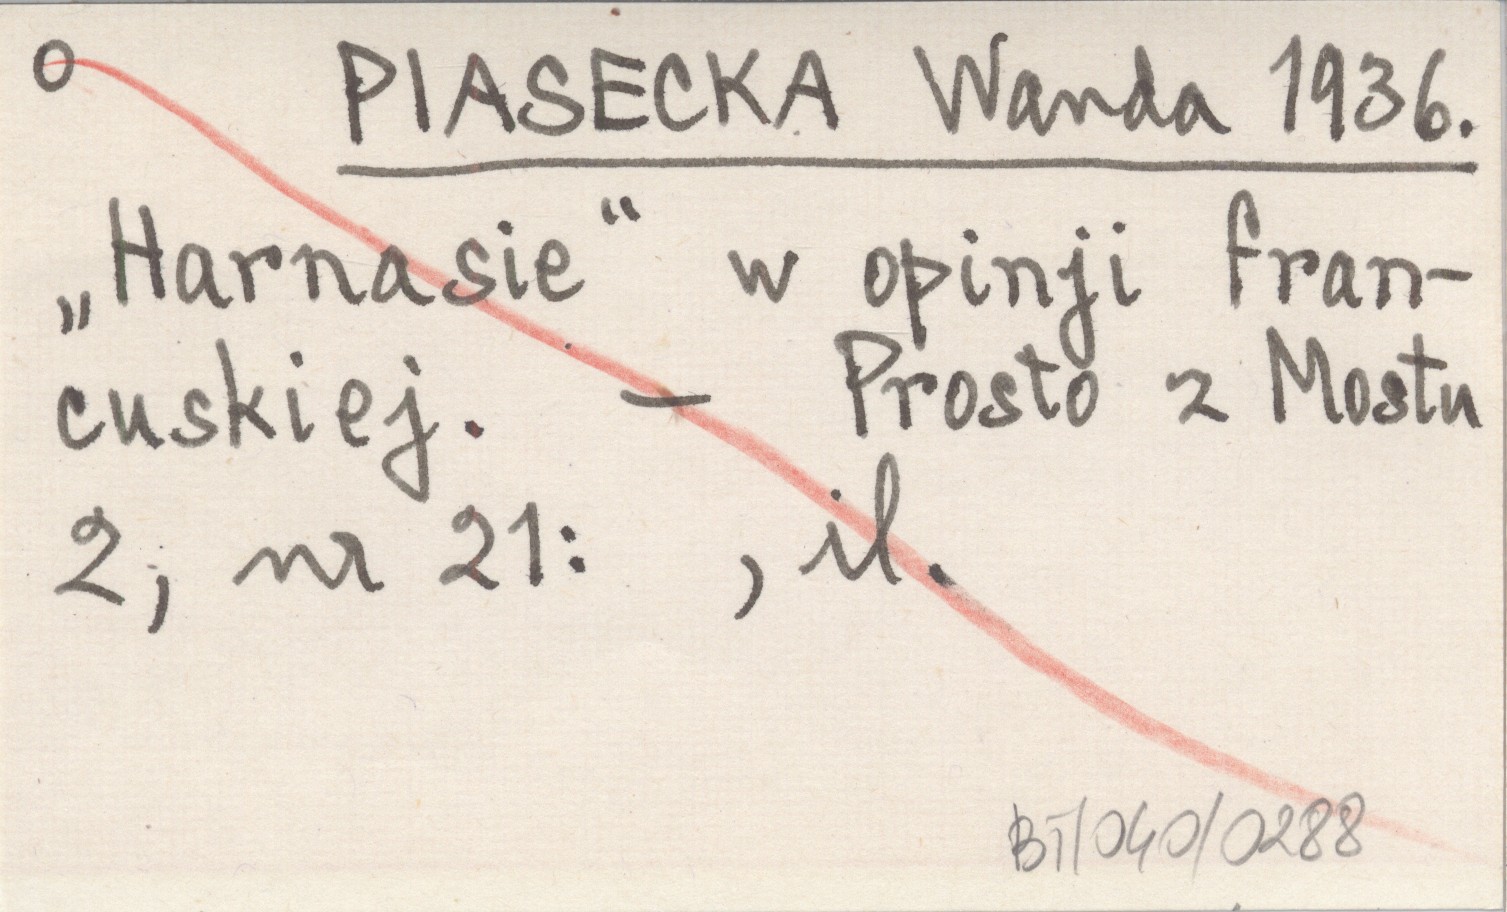 O PIASECKA Wanda 1936.
„Harnasie“ w opinji fran-
cuskiej. — Prosto z Mostu
2, nr 21: , il.
BT/040/0288